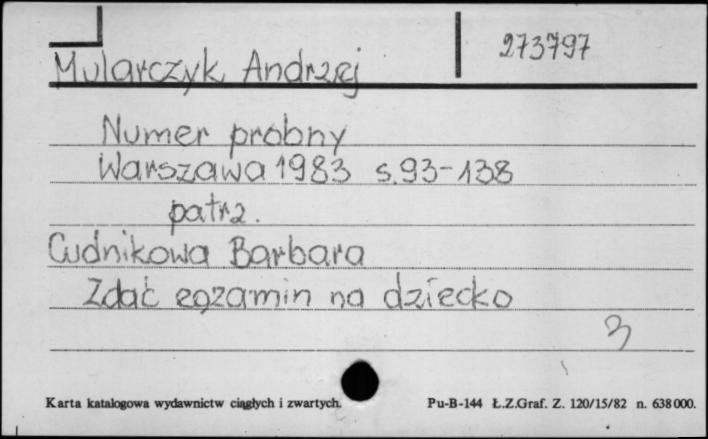 273797
Mularczyk Andrzej
Numer próbny
Warszawa 1983 s.93-138
patrz.
Cudnikowa Barbara
Zdać egzamin na dziecko
3
Karta katalogowa wydawnictw ciągłych i zwartych.
Pu-B-144 Ł.Z.Graf. Z. 120/15/82 n. 638000.